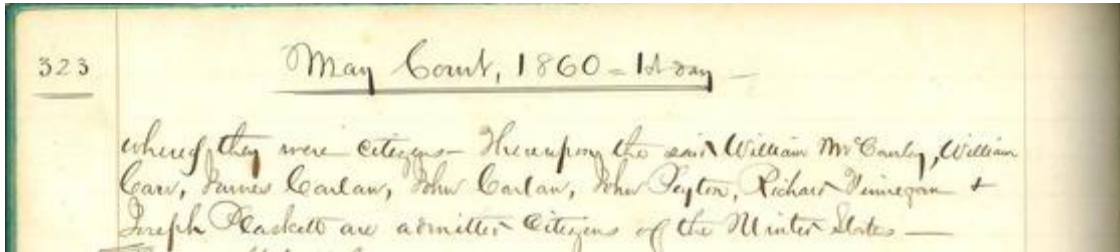 323
May Court, 1860 - 1st day -
whereof they were citizens - Thereupon the said William McCauley, William
Carr, James Carlan, John Carlan, John Peyton, Richard Finnegan &
Joseph Plaskett are admitted Citizens of the United States -